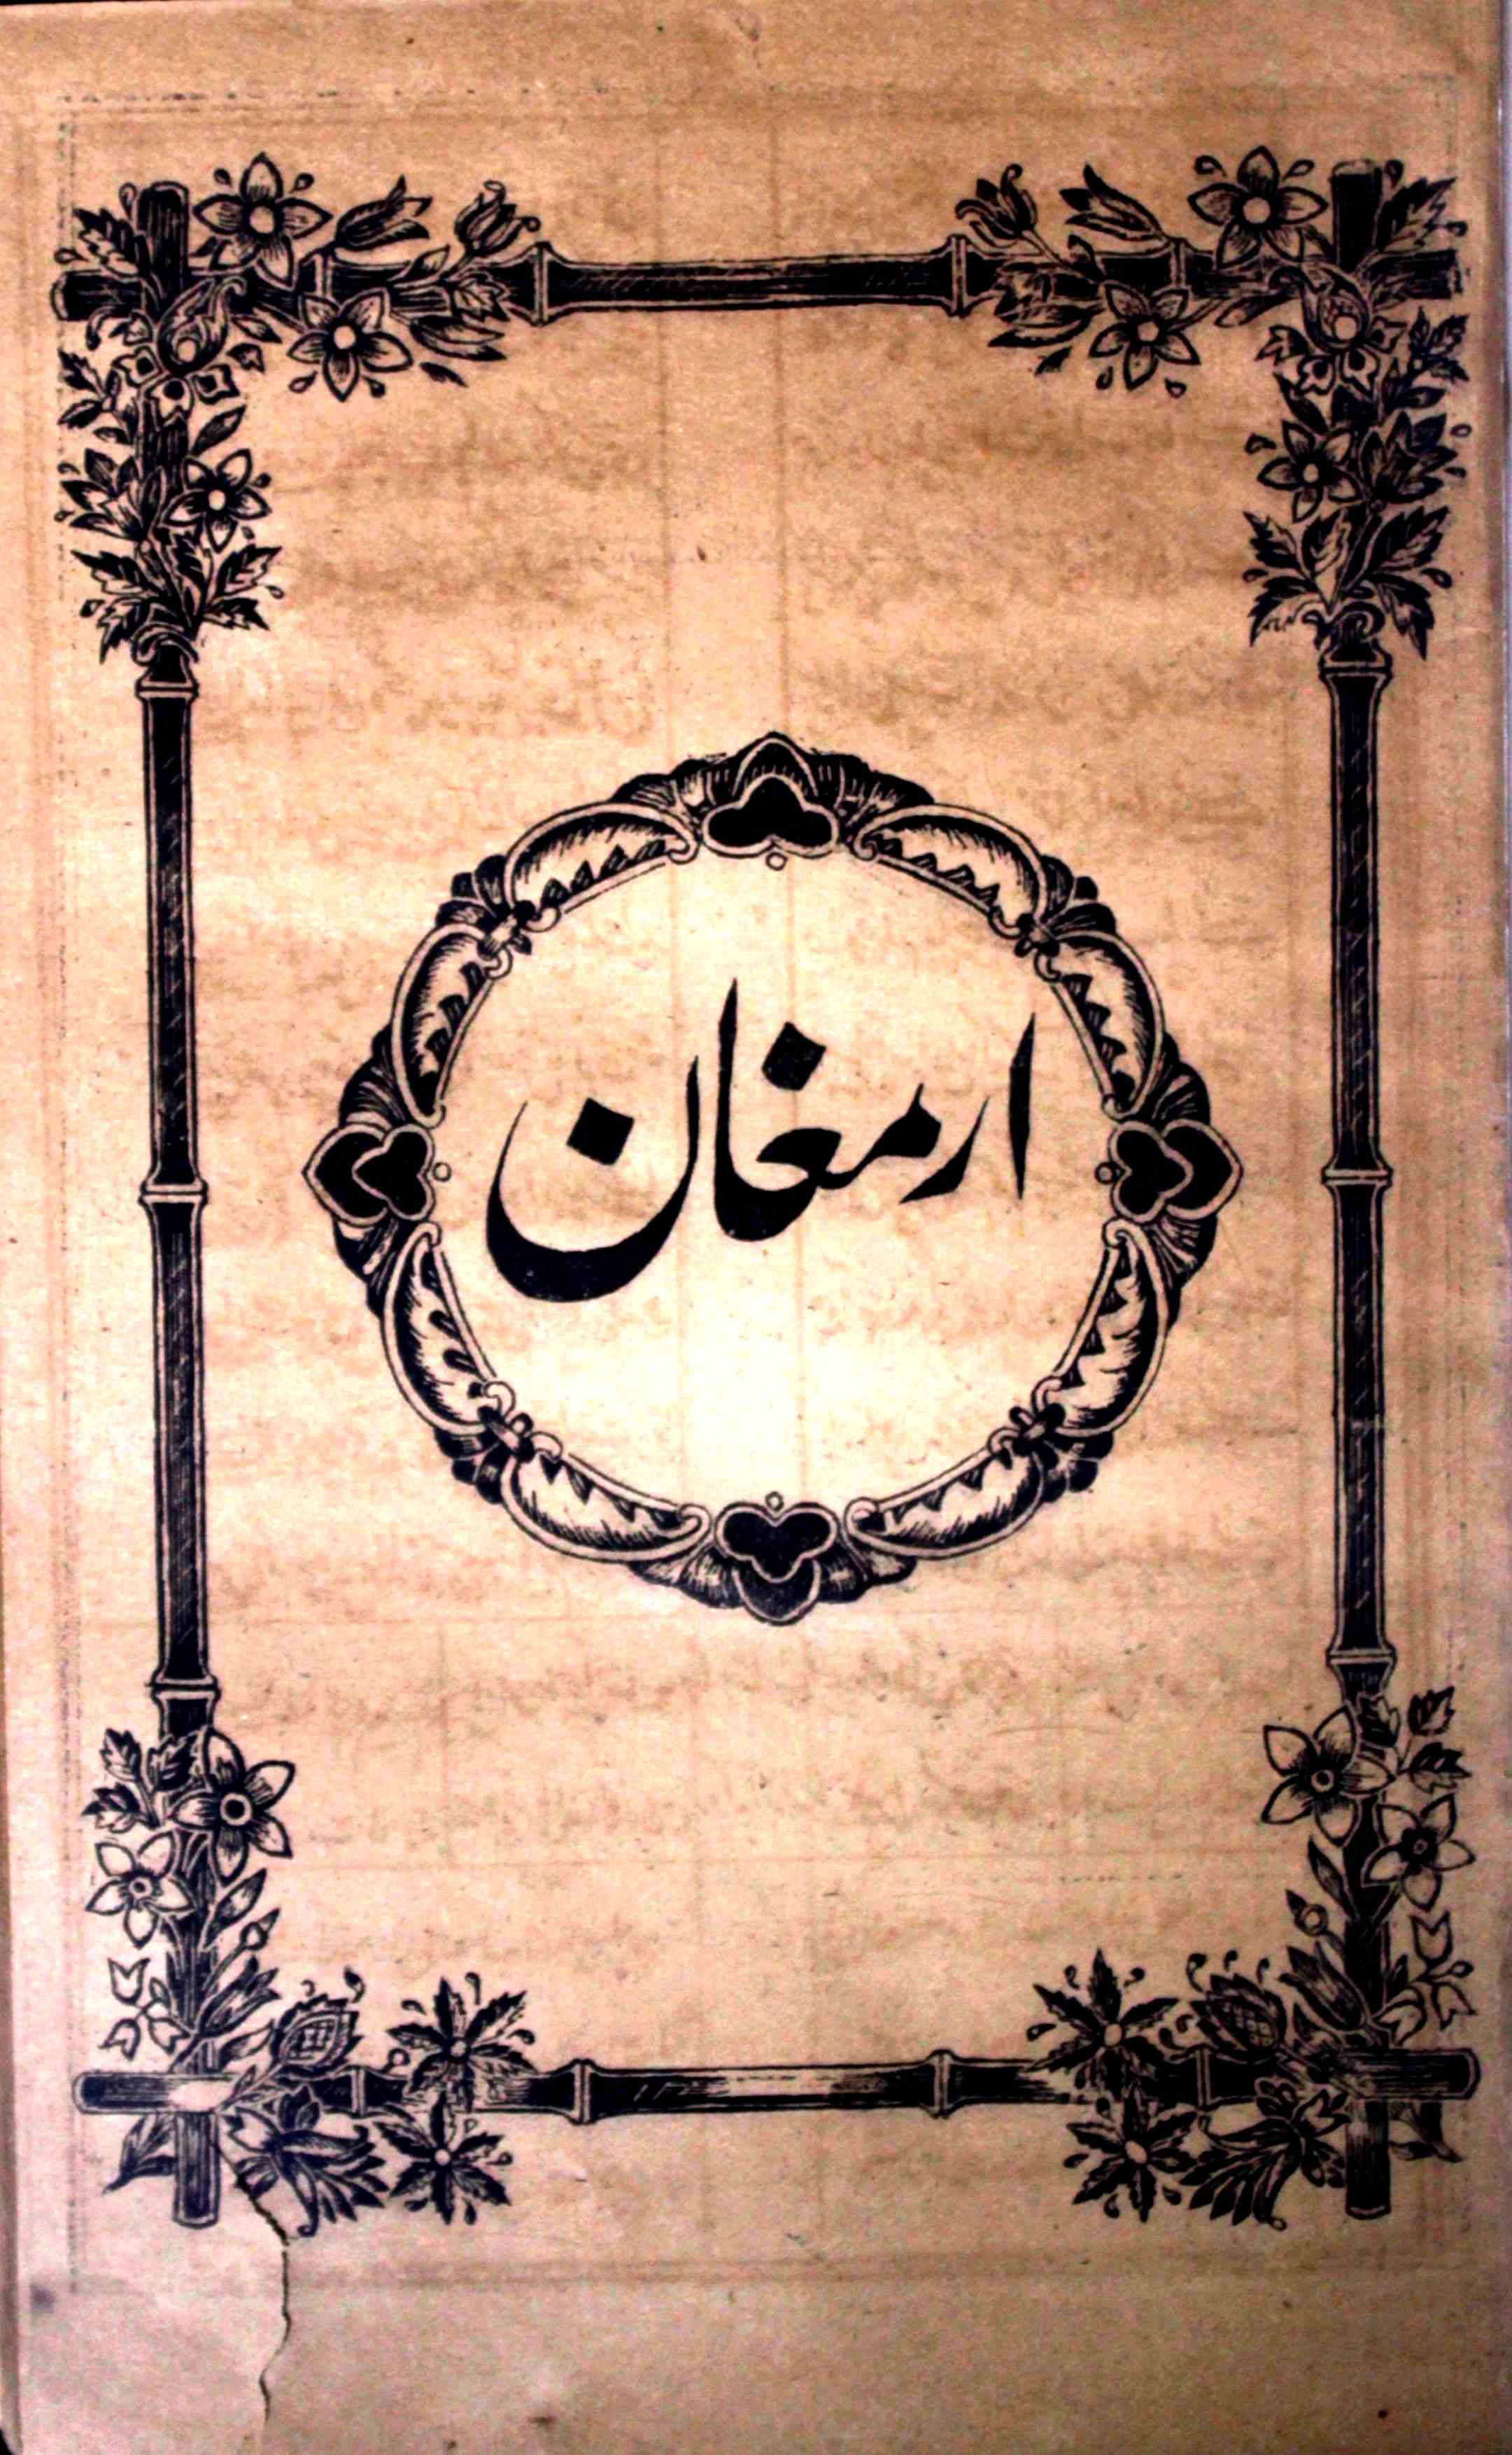 ارمغان